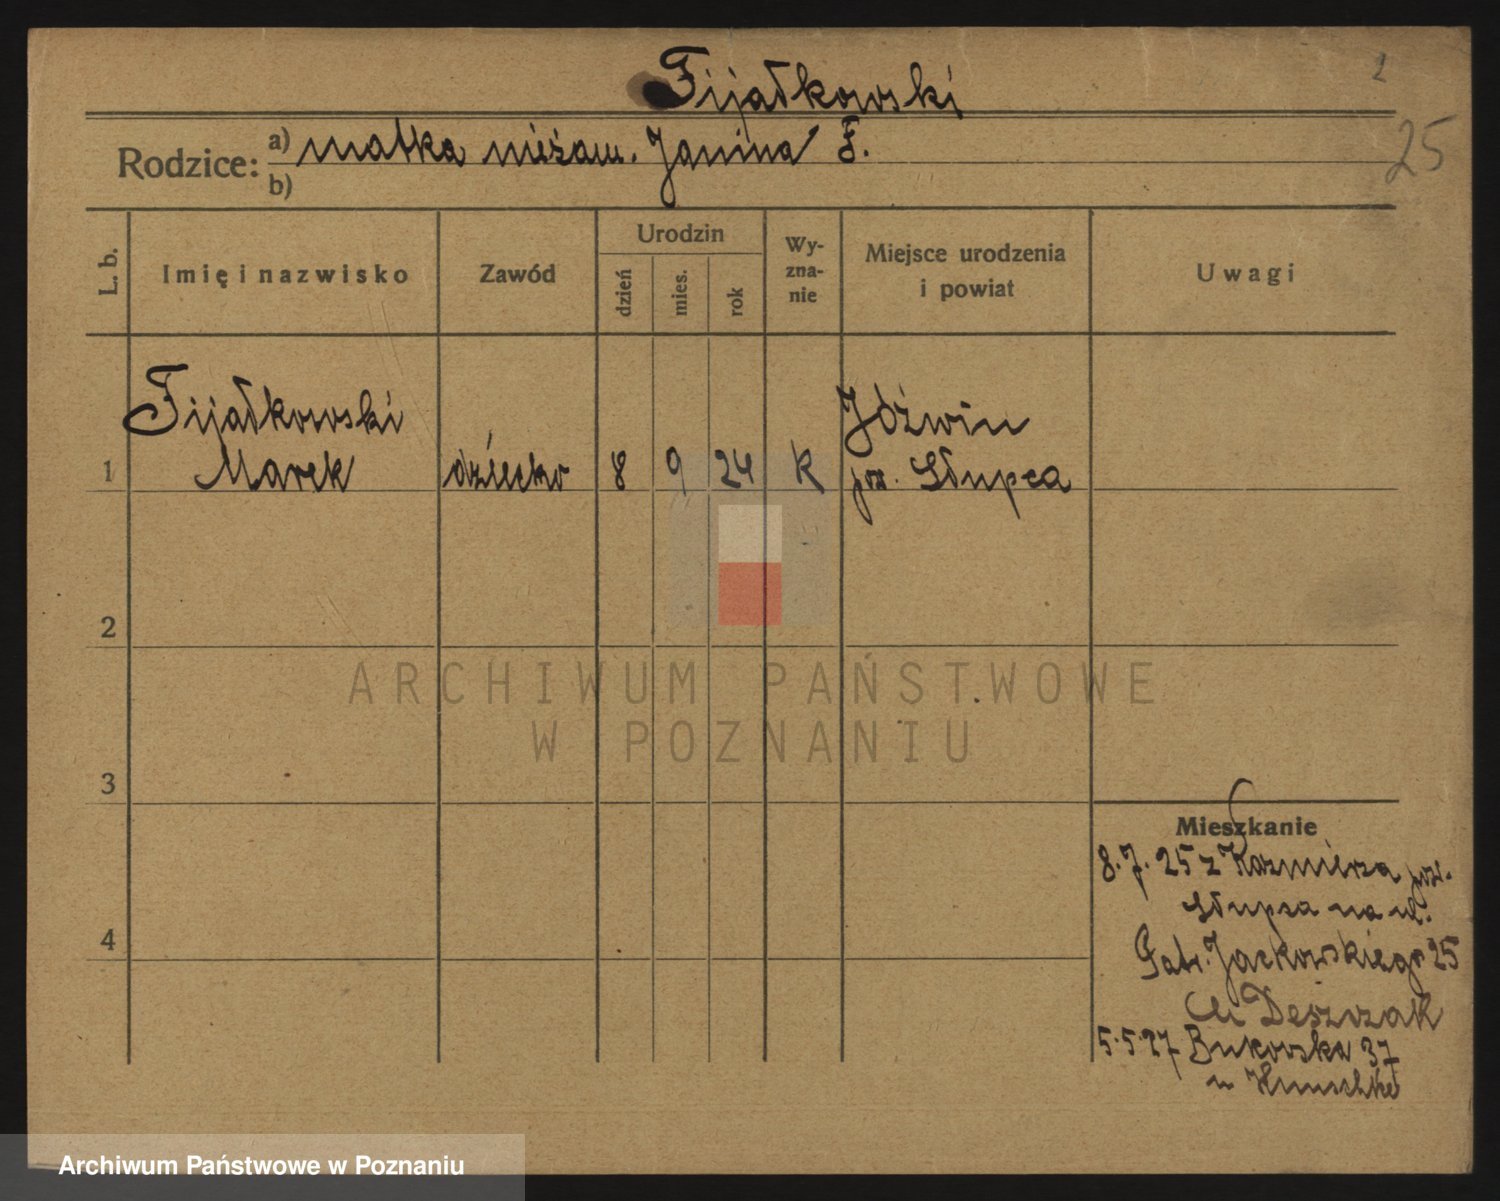 2
Fijałkowski
25
Rodzice: a) matka nieżam. Janina F.
b)
L. b.
Imię i nazwisko
Zawód
Urodzin
dzień
mies.
rok
Wy-
zna-
nie
Miejsce urodzenia
i powiat
Uwagi
Fijałkowski
Marek
1
dziecko
8
9
24
K
Jóźwin
pow. Słupca
2
3
4
ARCHIWUM PAŃSTWOWE
W POZNANIU
Mieszkanie
8.7.25 z Kazmierza pow.
Słupsa na ul.
Patr. Jackowskiego 25
u Deszczak
5.5.27 Bukowska 37
u
Archiwum Państwowe w Poznaniu